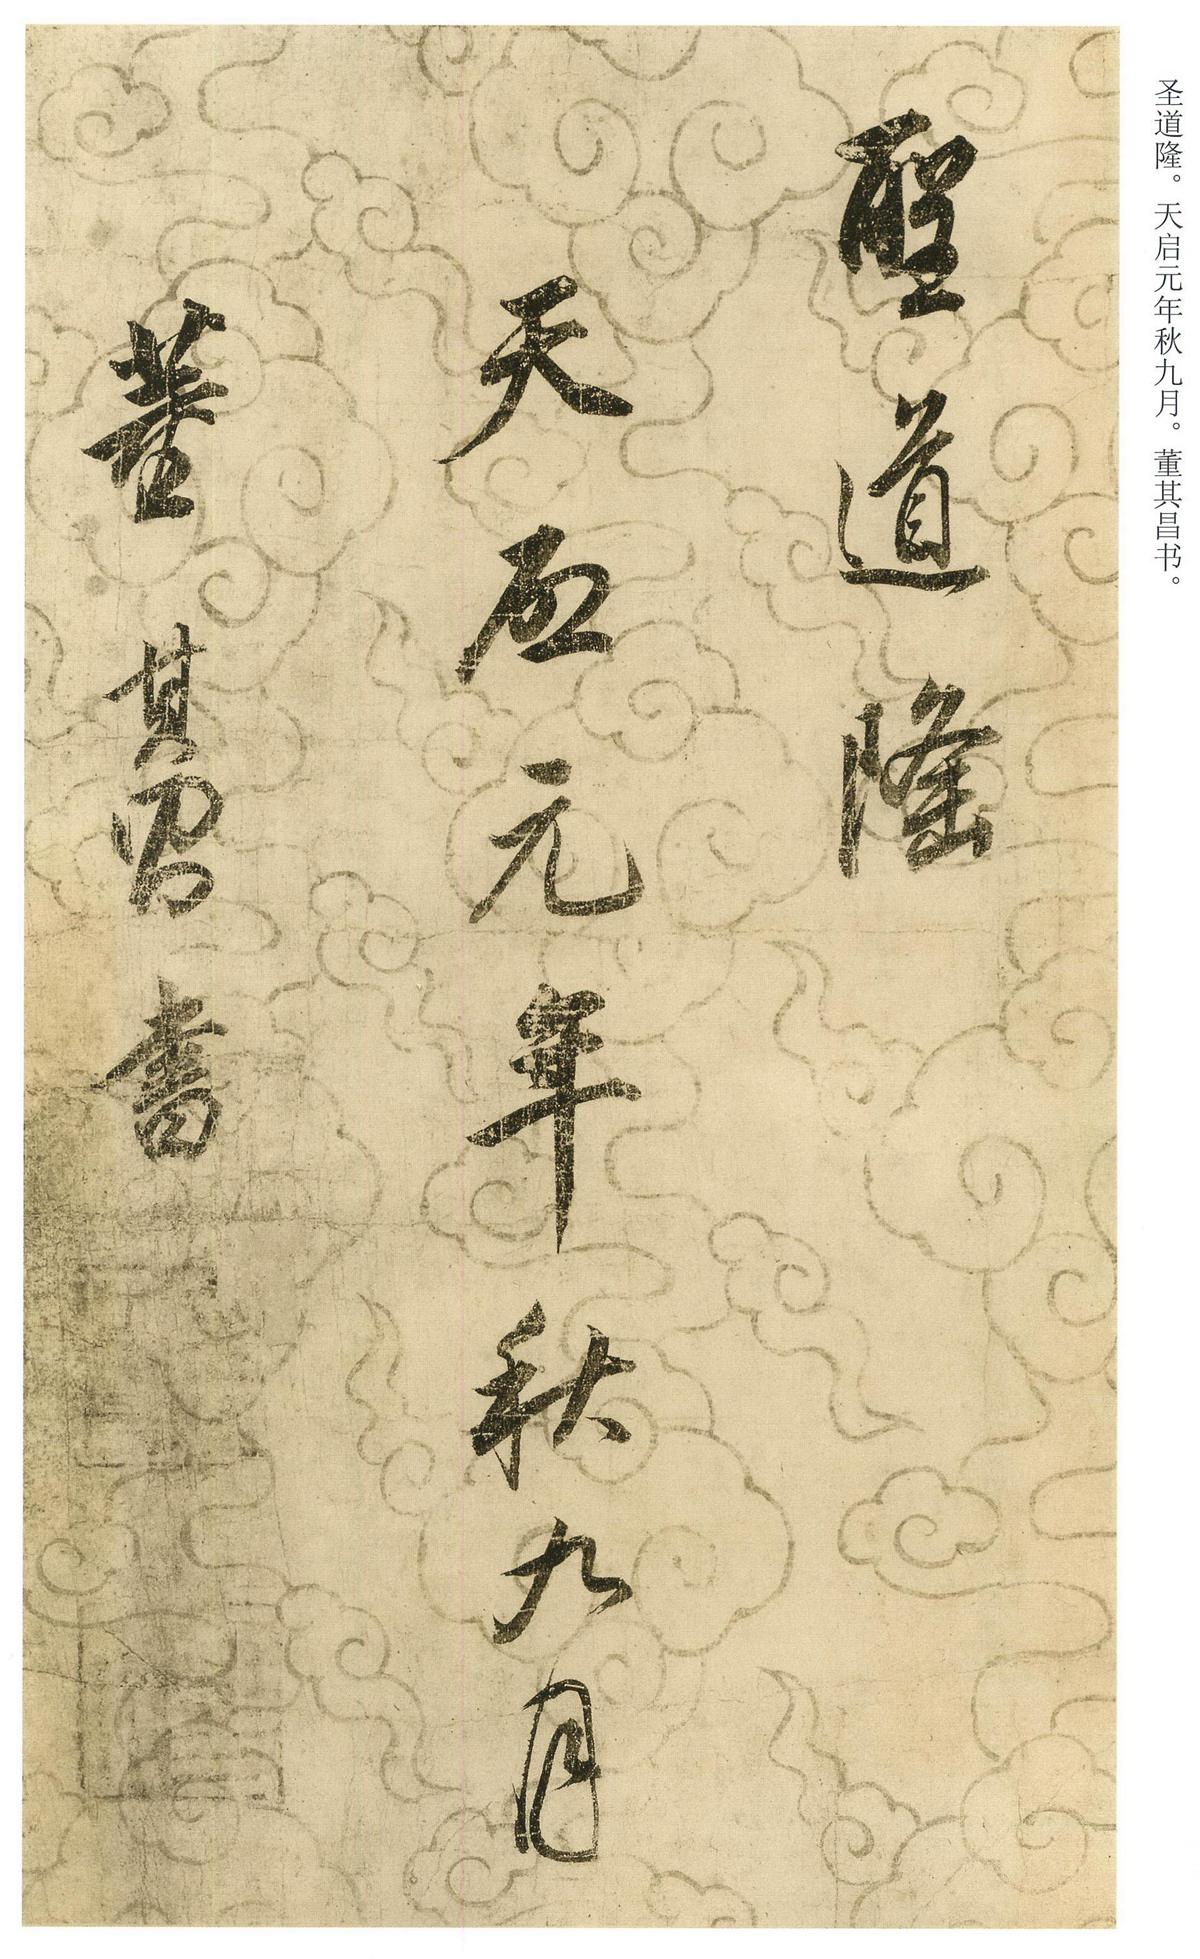 圣道隆。天启元年秋九月。董其昌书。
聖道隆
天啟元年秋九月
董其昌書